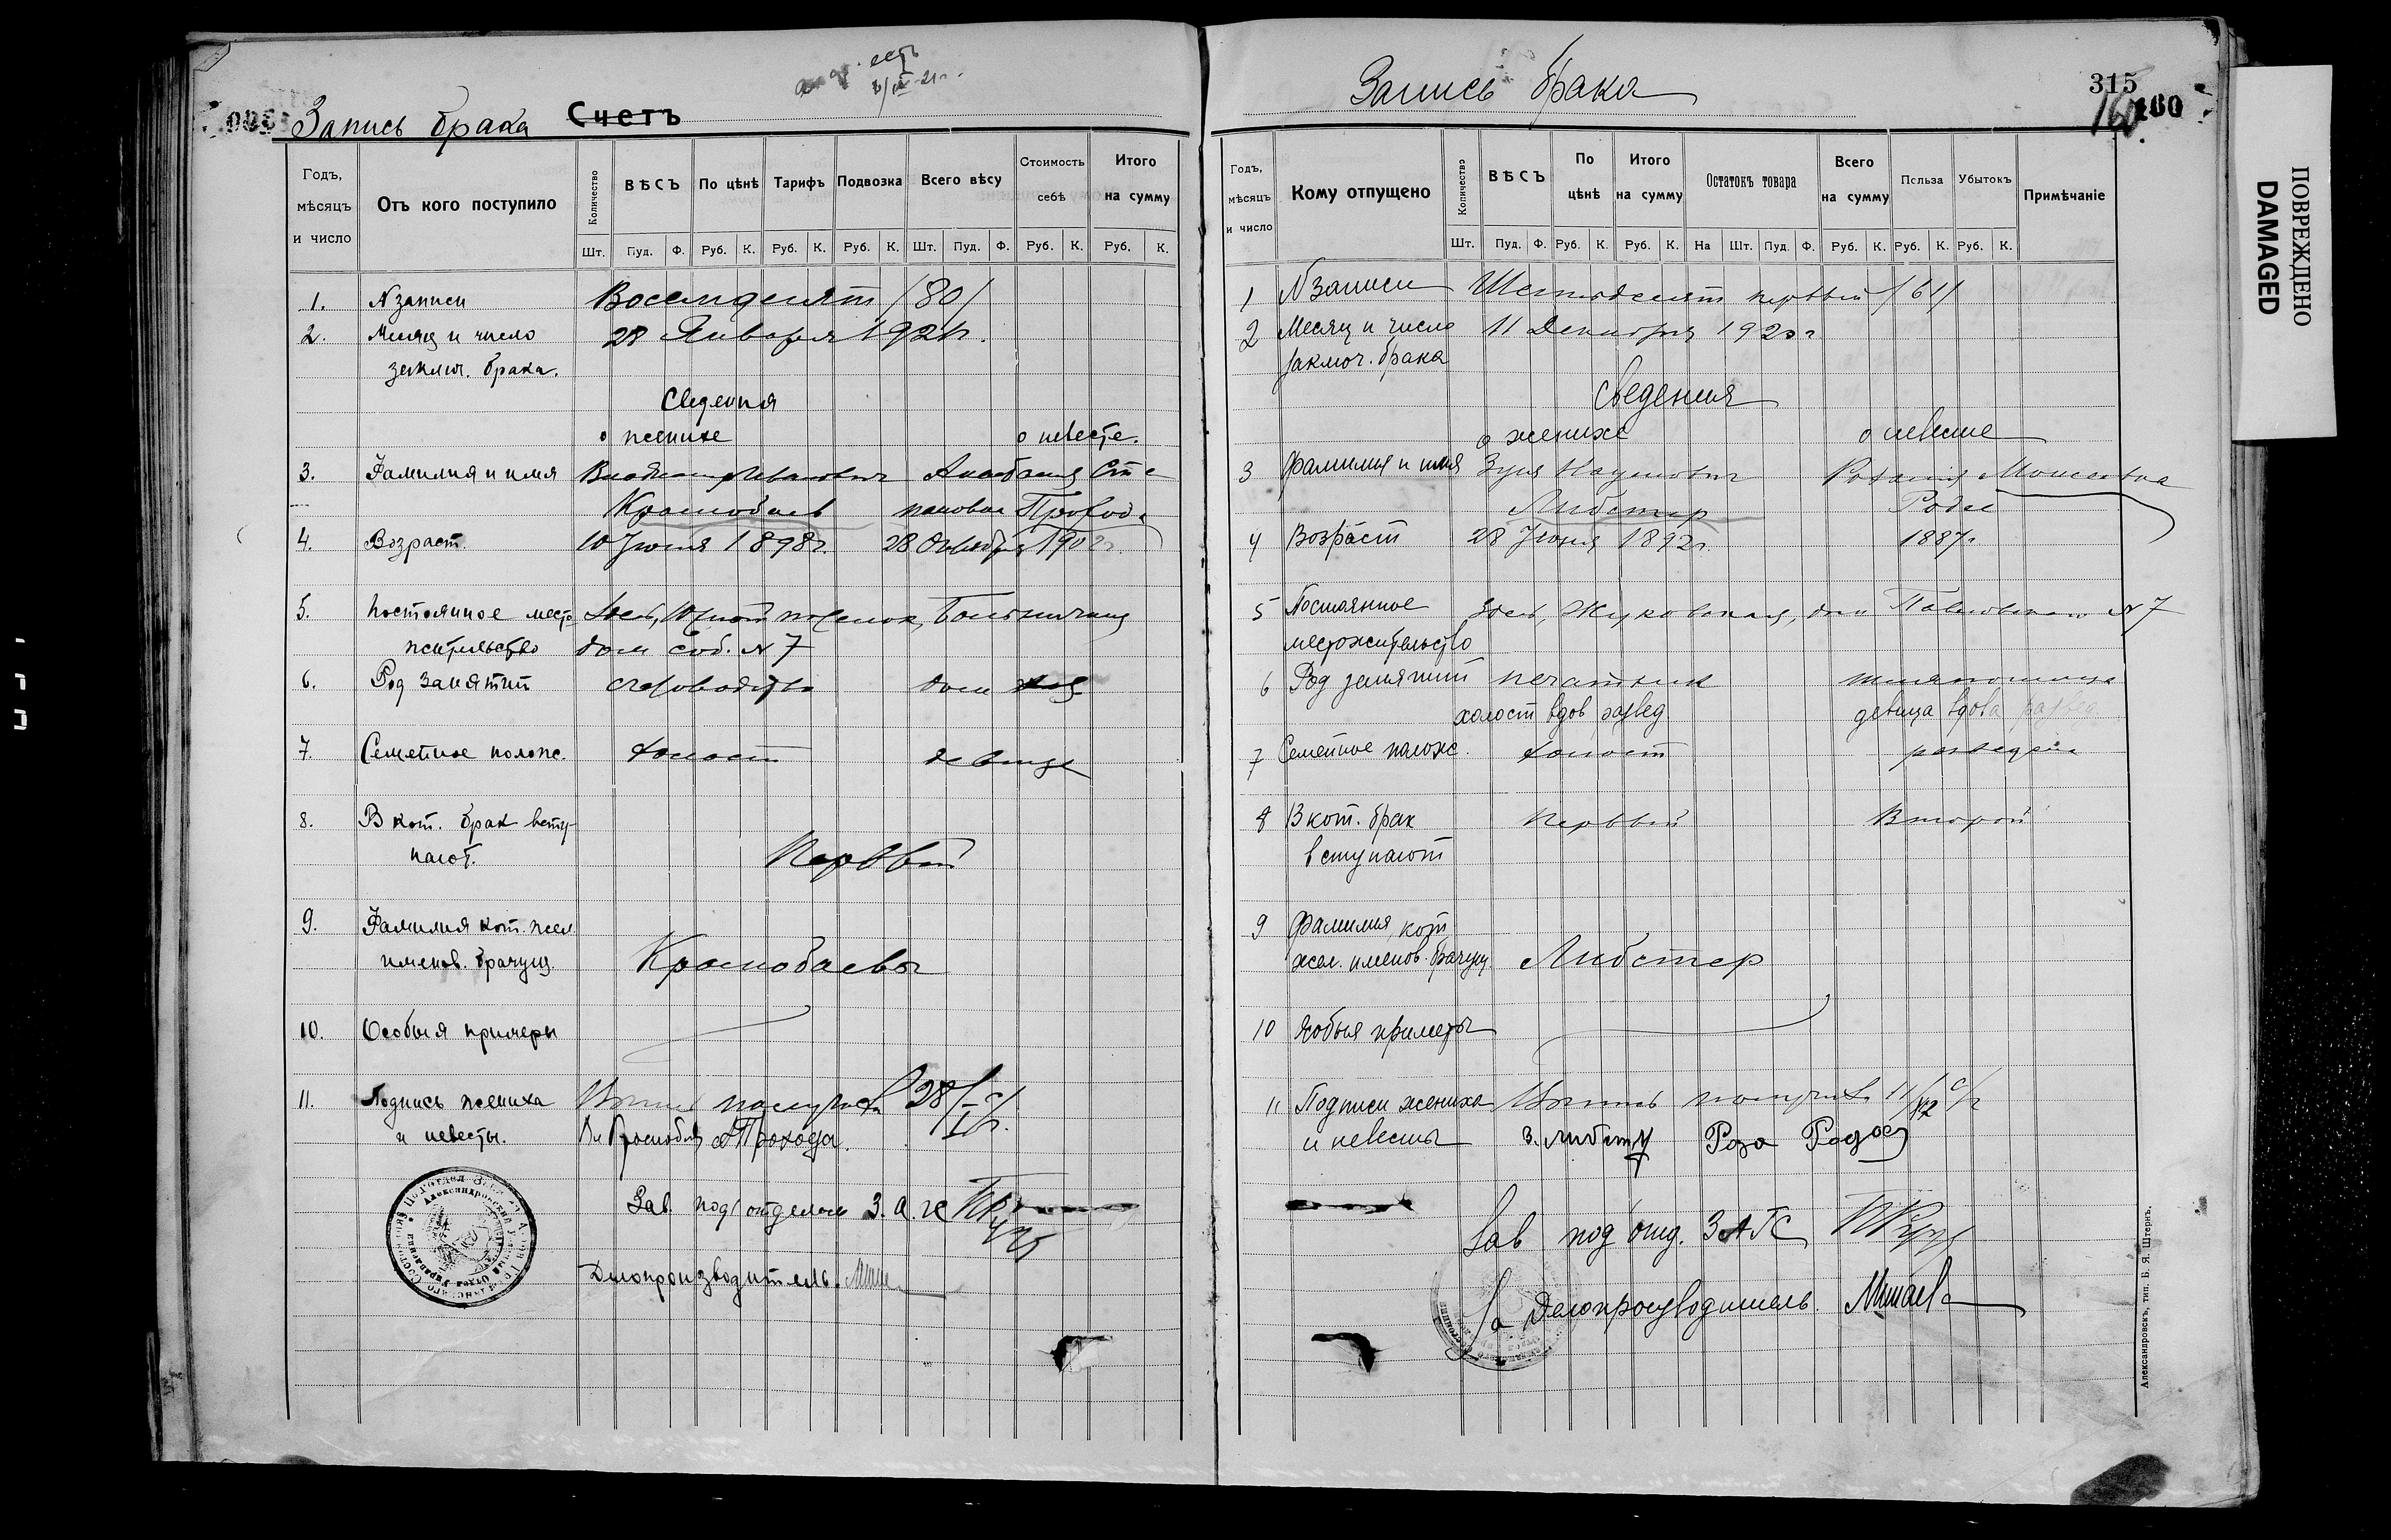 Запись брака Счетъ
Годъ, мѣсяцъ и число
Отъ кого поступило
Количество
ВѢСЪ
По цѣнѣ
Тарифъ
Подвозка
Всего вѣсу
Стоимость себѣ
Итого на сумму
Шт. Пуд. Ф. Руб. К. Руб. К. Руб. К. Шт. Пуд. Ф. Руб. К. Руб. К.
1. N записи Восемдесят /80/
2. Месяц и число 28 Января 1921г.
заключ. брака.
Сведения
о женихе о невесте.
3. Фамилия и имя Владимир Иванович Анастасия Сте
Краснобаев пановна Проход
4. Возраст. 10 Июня 1898г. 28 Октября 1902г.
5. Постоянное место Здесь, Южный поселок, Больничная
жительство дом соб. N 7
6. Род занятий счетоводство дом хоз
7. Семейное полож. холост девица
8. В кот. брак всту-
пают. Первый
9. Фамилия кот. жел.
именов. брачущ. Краснобаевы
10. Особыя примеры
11. Подпись жениха получил 28/I
и невесты. Вл Краснобаев А Прохода.
Зав. под/отделом З.а.гс
Делопроизводитель.
Запись брака
315
160 160
Годъ, мѣсяцъ и число
Кому отпущено
Количество
ВѢСЪ
По цѣнѣ
Итого на сумму
Остатокъ товара
Всего на сумму
Польза
Убытокъ
Примѣчаніе
Шт. Пуд. Ф. Руб. К. Руб. К. На Шт. Пуд. Ф. Руб. К. Руб. К. Руб. К.
1 N записи Шестьдесят первый /61/
2 Месяц и число 11 Декабря 1920г
заключ. брака
Сведения
о женихе о невесте
3 Фамилия и имя Зуся Наумович Моисеевна
Либстер Родос
4 Возраст 28 Июня 1892г. 1887г
5 Постоянное Здесь, Жуковская, дом N 7
местожительство
6 Род занятий печатник шляпочница
холост вдов развед. девица вдова развед
7 Семейное полож. холост разведена
8 В кот. брак Первый Второй
вступают
9 Фамилия, кот
жел. именов. брачущ. Либстер
10 Особыя приметы
11 Подписи жениха получил 11/XII
и невесты З. Либстер Роза Родос
Зав под/отд. ЗАГС
За Делопроизводитель. Минаев
Александровскъ, тип. Б. Я. Штернъ.
ПОВРЕЖДЕНО
DAMAGED